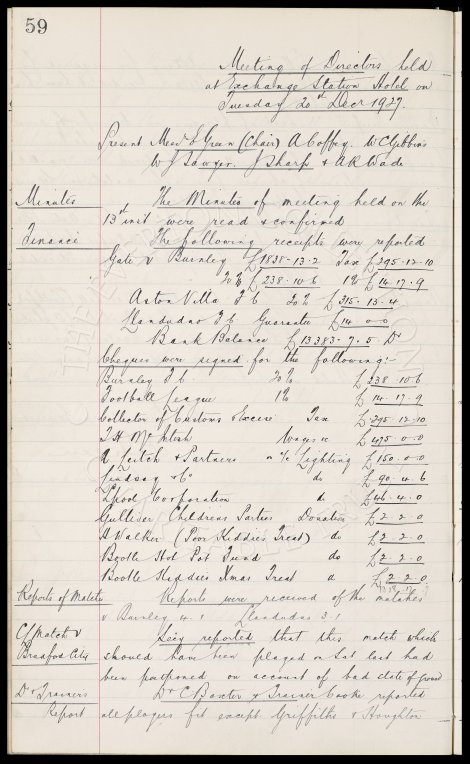 59
Meeting of Directors held
at Exchange Station Hotel on
Tuesday 20th Decr 1927.
Present Messrs E Green (Chair) A Coffey. W C Gibbins
W J Sawyer. J Sharp & A R Wade
Minutes The Minutes of meeting held on the
13th inst were read & confirmed
Finance The following receipts were reported
Gate v Burnley £1838-13-2 Tax £295-12-10
20% £238-10-6 1% £14-17-9
Aston Villa F C 20% £315-13-4
Llandudno F C Guarantee £14-0-0
Bank Balance £13383-7-5 Dr
Cheques were signed for the following:-
Burnley F C 20% £238-10-6
Football League 1% £14-17-9
Collector of Customs & Excise Tax £295-12-10
T H McIntosh Wages &c £475-0-0
A Leitch & Partners a/c Lighting £150.0.0
Lindsay & Co do £90-4-6
Lpool Corporation do £46.4.0
Gulliver Childrens Parties Donation £2-2-0
H Walker (Poor Kiddies Treat) do £2-2-0
Bootle Hot Pot Fund do £2-2-0
Bootle Kiddies Xmas Treat do £2-2-0
Reports of Matches Reports were received of the matches
v Burnley 4-1 Llandudno 3-1
CL Match v Secy reported that this match which
Bradford City should have been played on Sat last had
been postponed on account of bad state of ground
Dr & Trainers Dr C Baxter & Trainer Cooke reported
Report all players fit except Griffiths & Houghton